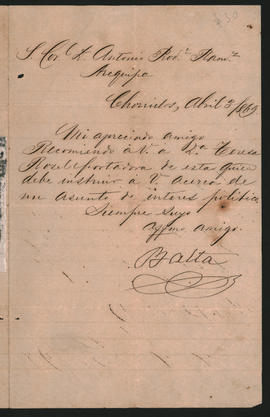 S. Cor. D. Antonio Rod. Ram.z
Arequipa
Chorrillos, Abril 2/1869.
Mi apreciado amigo
Recomiendo á U. a Da. Teresa
Rosel portadora de esta quien
debe instruir á U. acerca de
un asunto de interes politico.
Siempre Suyo
affmo. amigo.
Balta